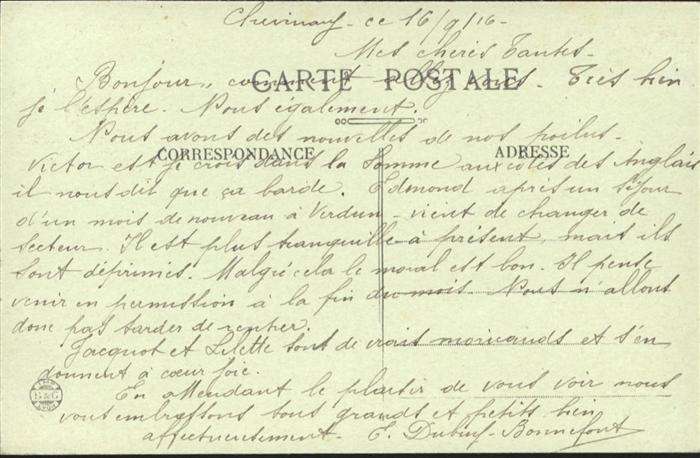 Chevinay ce 16/9/16-
Mes chères Tantes-
Bonjour, comment allez vous. Très bien
CARTE POSTALE
je l'éspère. Nous également.
Nous avons des nouvelles de nos poilus-
CORRESPONDANCE
ADRESSE
Victor est je crois dans la Somme aux cotés des Anglais
il nous dit que ça barde. Edmond après un séjour
d'un mois de nouveau à Verdun - vient de changer de
secteur. Il est plus tranquille à présent, mais ils
sont déprimés. Malgré cela le moral est bon. Il pense
venir en permission à la fin du mois. Nous n'allons
donc pas tarder de rentrer.
Jacquot et Lilette sont de vrais moricauds et s'en
donnent à cœur joie.
En attendant le plaisir de vous voir nous
vous embrassons tous grands et petits bien
affectueusement - E. Dubeuf-Bonnefont